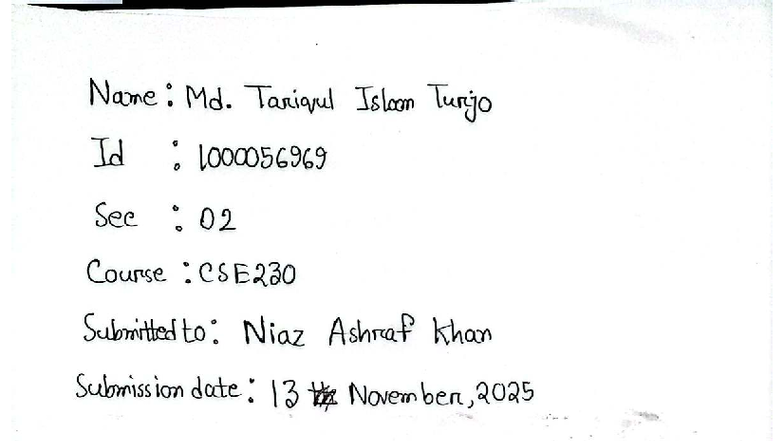 Name: Md. Tariqul Islam Turjo
Id : 1000056969
Sec : 02
Course : CSE230
Submitted to: Niaz Ashraf Khan
Submission date: 13 November, 2025